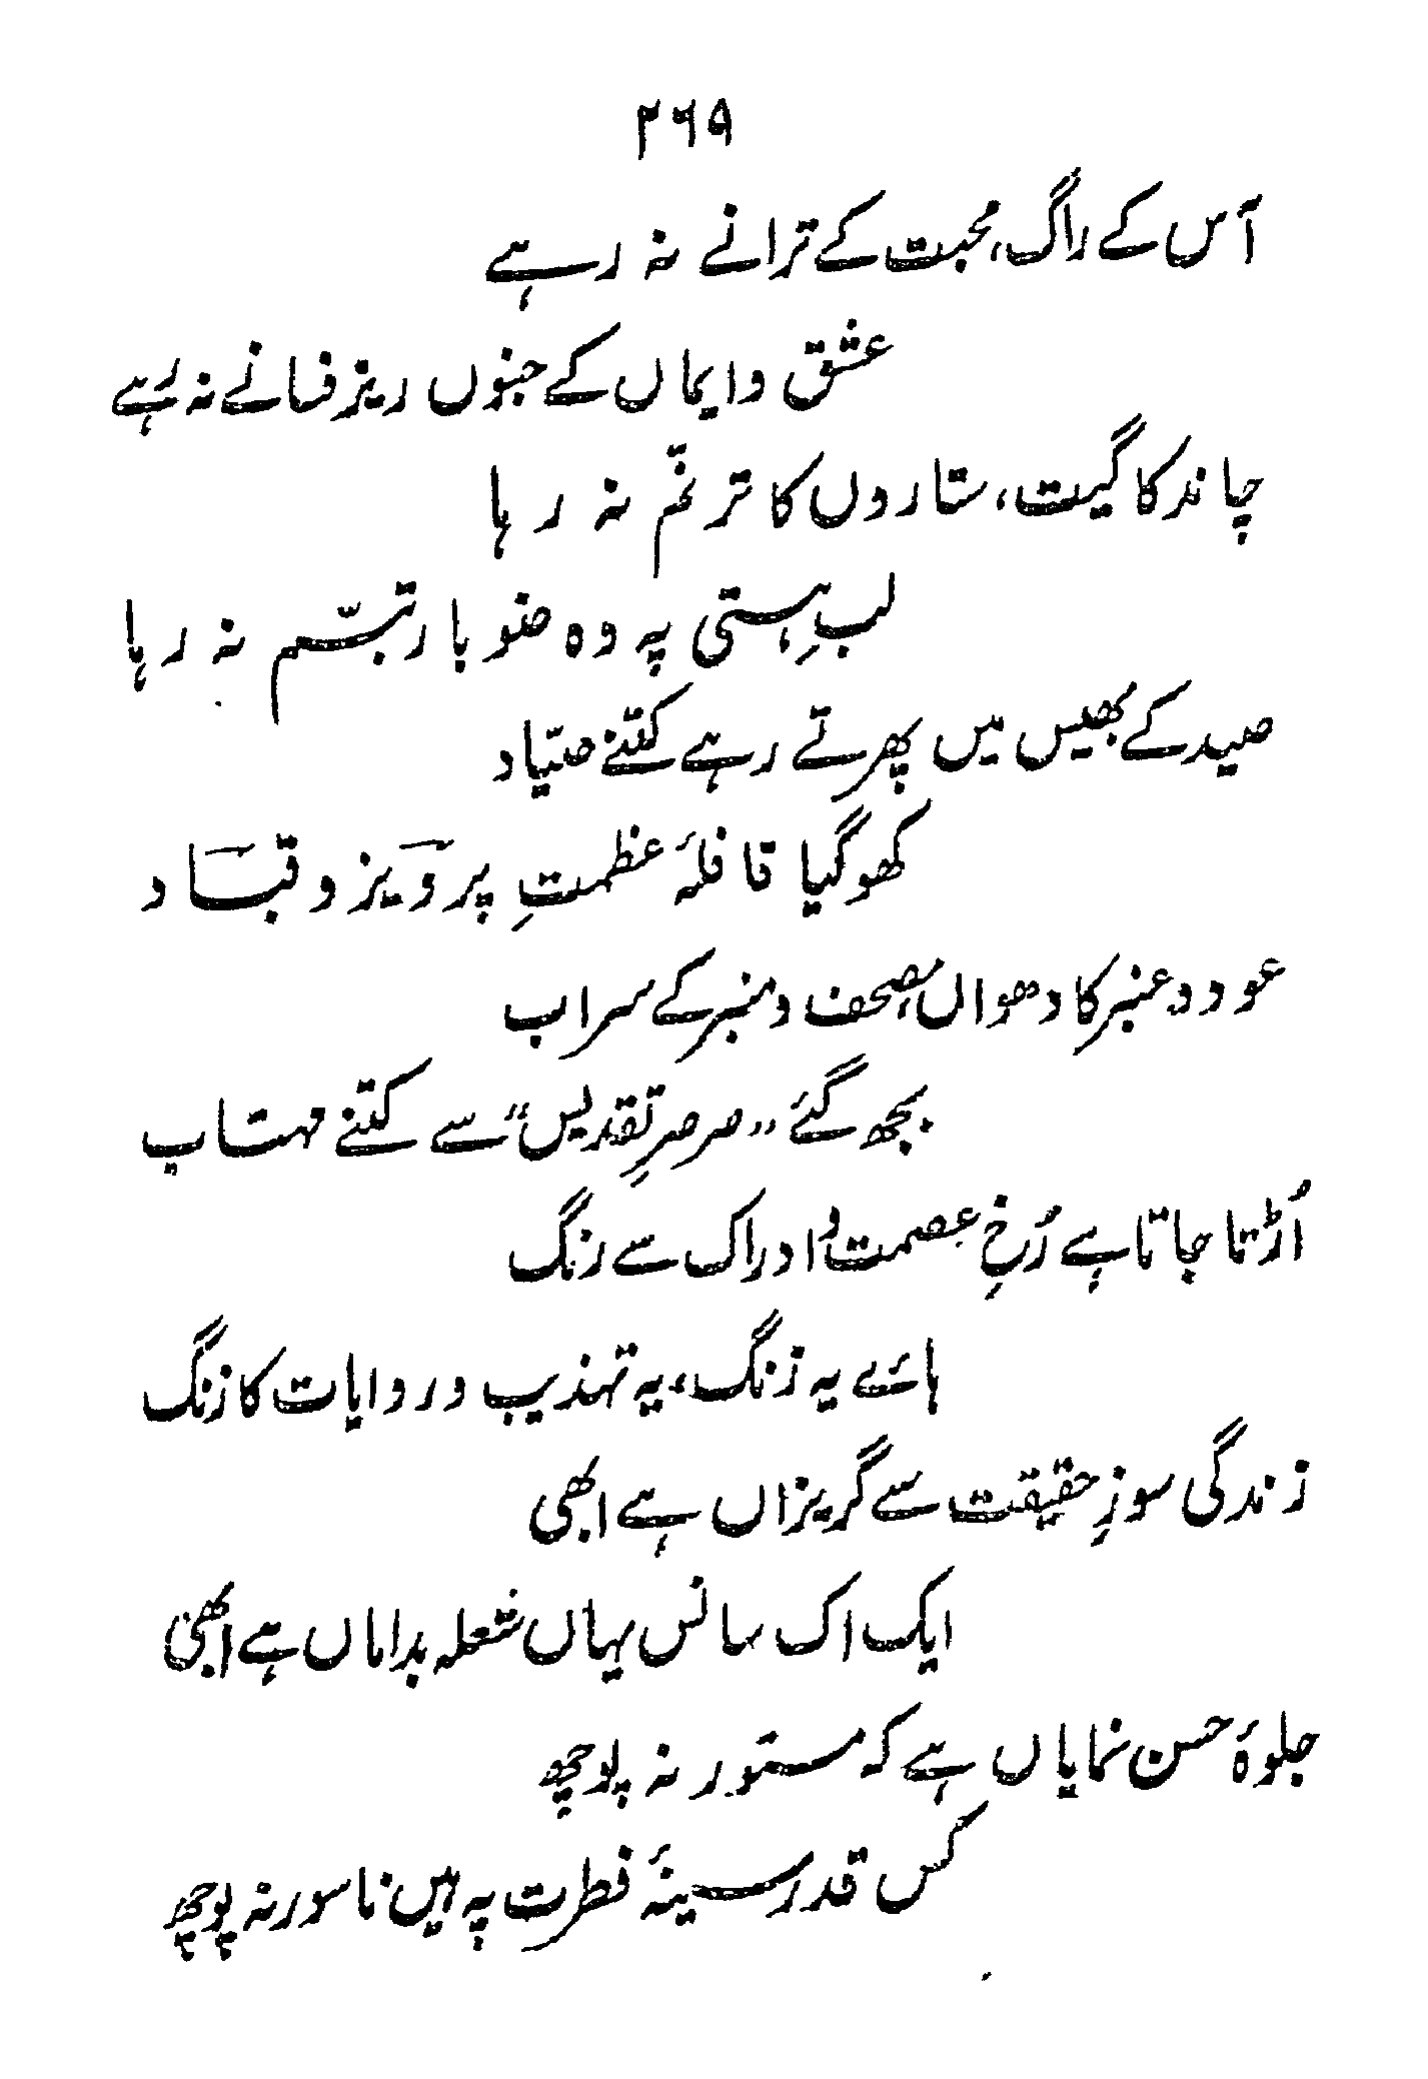 ۲۶۵
آس کے راگ، محبت کے ترانے نہ رہے
عشق و ایماں کے جنوں ریز فسانے نہ رہے
چاند کا گیت، ستاروں کا ترنّم نہ رہا
لبِ ہستی پہ وہ ضو بار تبسّم نہ رہا
صید کے بھیس میں پھرتے رہے کتنے صیّاد
کھو گیا قافلۂ عظمتِ پرویز و قباد
عود و عنبر کا دھواں، مصحف و منبر کے سراب
بجھ گئے "صرصرِ تقدیس" سے کتنے مہتاب
اُڑتا جاتا ہے رُخِ عصمت و ادراک سے رنگ
ہائے یہ زنگ، یہ تہذیب و روایات کا زنگ
زندگی سوزِ حقیقت سے گریزاں ہے ابھی
ایک اک سانس یہاں شعلہ بداماں ہے ابھی
جلوۂ حسن نمایاں ہے کہ مستور نہ پوچھ
کس قدر سینۂ فطرت پہ ہیں ناسور نہ پوچھ